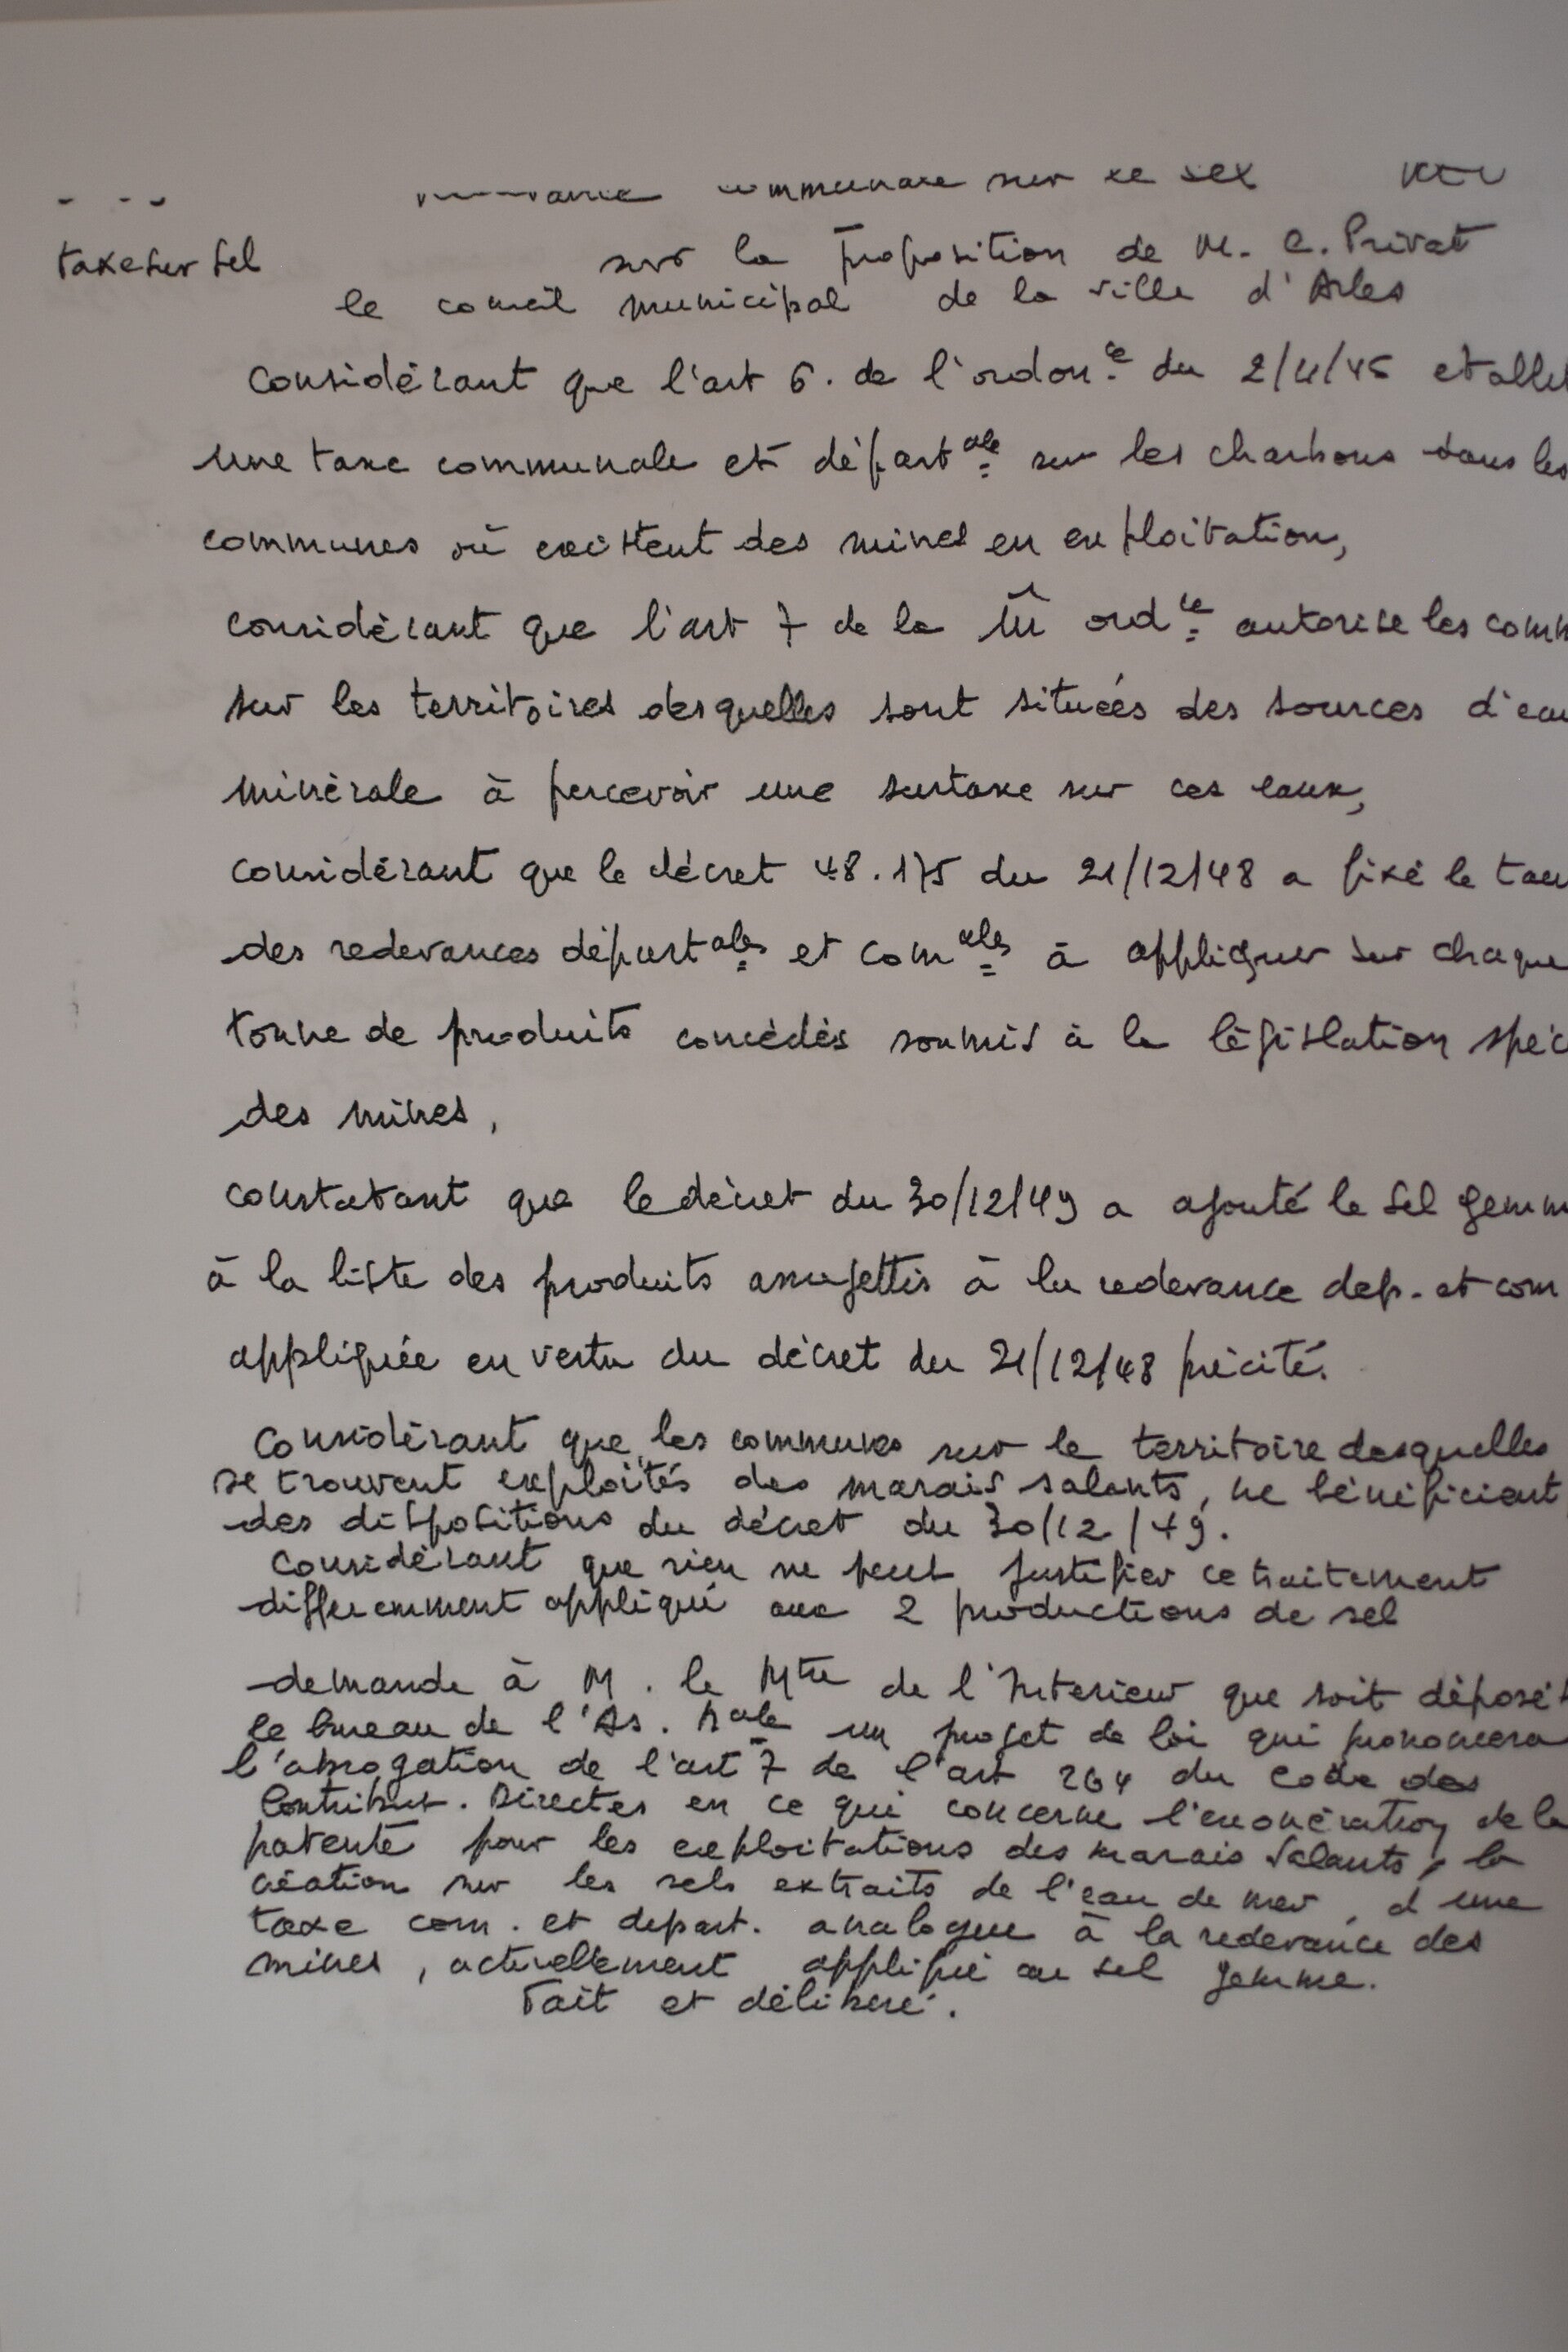 communale sur le sel
taxe sur sel
sur la proposition de M. C. Privat
le conseil municipal de la ville d'Arles
Considérant que l'art 6. de l'ordon.ce du 2/11/45 etablit
une taxe communale et départale sur les charbons dans les
communes où existent des mines en exploitation,
considérant que l'art 7 de la m̂ ordce autorise les comm
sur les territoires desquelles sont situées des sources d'eau
minérale à percevoir une surtaxe sur ces eaux,
considérant que le décret 48.175 du 21/12/48 a fixé le tau
des redevances départales et comales à appliquer sur chaque
tonne de produits concédés soumis à la législation spéc
des mines,
constatant que le décret du 30/12/49 a ajouté le sel gemm
à la liste des produits assujettis à la redevance dep. et com
appliquée en vertu du décret du 21/12/48 précité.
Considérant que les communes sur le territoire desquelles
se trouvent exploités des marais salants, ne bénéficient
des dispositions du décret du 30/12/49.
Considérant que rien ne peut justifier ce traitement
differemment appliqué aux 2 productions de sel
demande à M. le Mtre de l'Interieur que soit déposé
le bureau de l'As. Nale un projet de loi qui prononcera
l'abrogation de l'art 7 de l'art 264 du Code des
Contribut. Directes en ce qui concerne l'exonération de la
patente pour les exploitations des marais salants, la
création sur les sels extraits de l'eau de mer, d'une
taxe com. et depart. analogue à la redevance des
mines, actuellement appliqué au sel gemme.
Fait et délibéré.